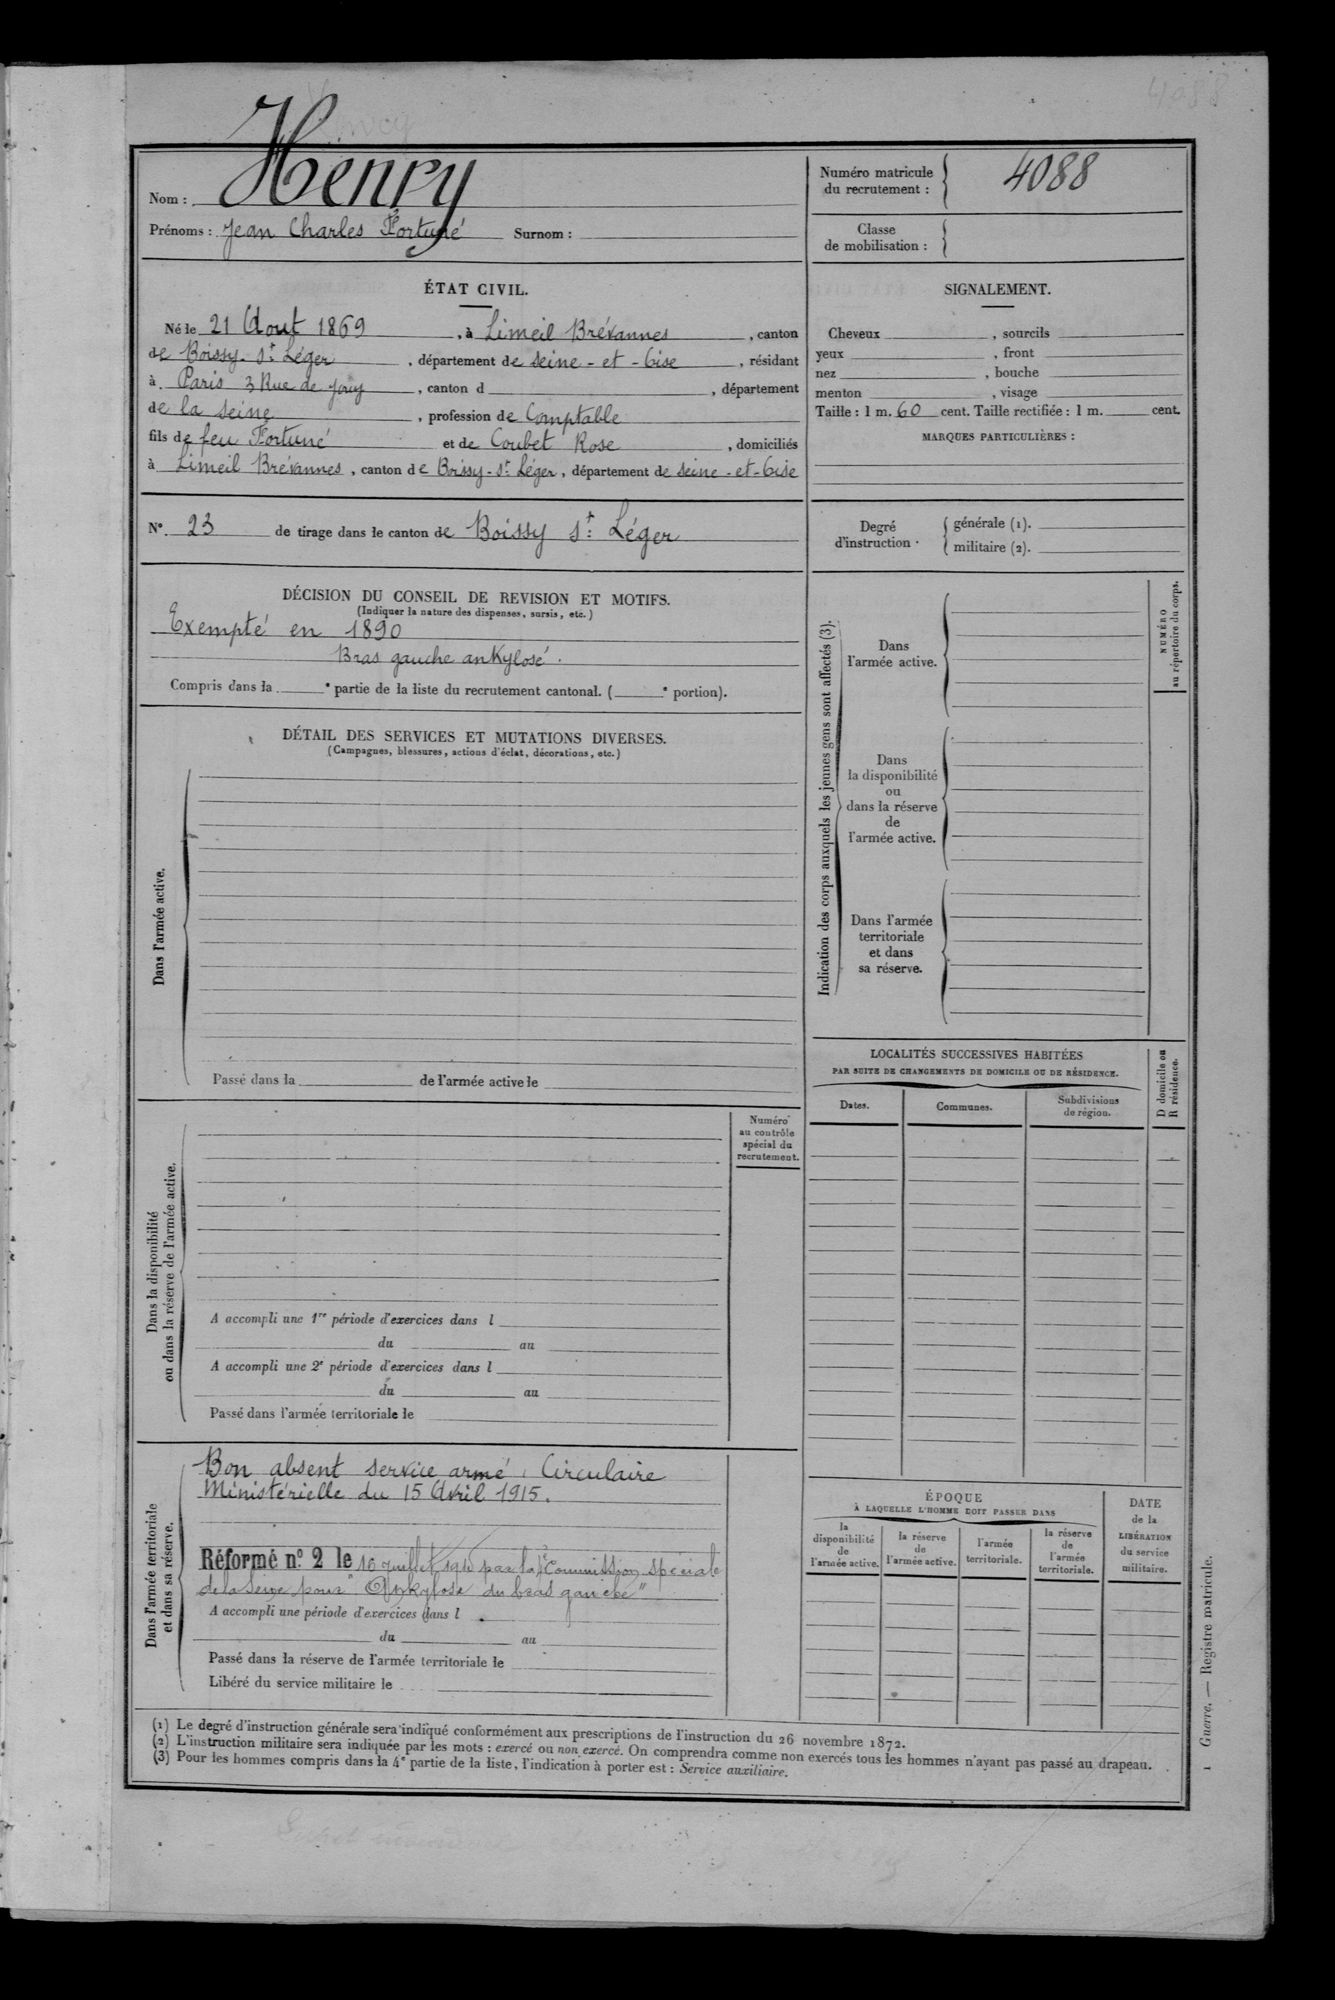 4088
Nom : Henry
Prénoms : Jean Charles Fortuné Surnom :
Numéro matricule
du recrutement : 4088
Classe
de mobilisation :
ÉTAT CIVIL.
Né le 21 Aout 1869, à Limeil Brévannes, canton
de Boissy-St Léger, département de Seine-et-Oise, résidant
à Paris 3 Rue de Jouy, canton d , département
de la Seine, profession de Comptable
fils de feu Fortuné et de Coubet Rose, domiciliés
à Limeil Brévannes, canton de Boissy-St Léger, département de Seine-et-Oise
SIGNALEMENT.
Cheveux , sourcils
yeux , front
nez , bouche
menton , visage
Taille : 1 m. 60 cent. Taille rectifiée : 1 m. cent.
MARQUES PARTICULIÈRES :
N° 23 de tirage dans le canton de Boissy St Léger
Degré
d'instruction .
générale (1).
militaire (2).
DÉCISION DU CONSEIL DE REVISION ET MOTIFS.
(Indiquer la nature des dispenses, sursis, etc.)
Exempté en 1890
Bras gauche ankylosé.
Compris dans la e partie de la liste du recrutement cantonal. ( e portion).
DÉTAIL DES SERVICES ET MUTATIONS DIVERSES.
(Campagnes, blessures, actions d'éclat, décorations, etc.)
Dans l'armée active.
Passé dans la de l'armée active le
Indication des corps auxquels les jeunes gens sont affectés (3).
Dans
l'armée active.
Dans
la disponibilité
ou
dans la réserve
de
l'armée active.
Dans l'armée
territoriale
et dans
sa réserve.
NUMÉRO
au répertoire du corps.
LOCALITÉS SUCCESSIVES HABITÉES
PAR SUITE DE CHANGEMENTS DE DOMICILE OU DE RÉSIDENCE.
Dates.
Communes.
Subdivisions
de région.
D domicile ou
R résidence.
Dans la disponibilité
ou dans la réserve de l'armée active.
Numéro
au contrôle
spécial du
recrutement.
A accompli une 1re période d'exercices dans l
du au
A accompli une 2e période d'exercices dans l
du au
Passé dans l'armée territoriale le
Dans l'armée territoriale
et dans sa réserve.
Bon absent service armé, Circulaire
Ministérielle du 15 Avril 1915.
Réformé n° 2 le 16 Juillet par la Commission spéciale
de la Seine pour "Ankylose du bras gauche"
A accompli une période d'exercices dans l
du au
Passé dans la réserve de l'armée territoriale le
Libéré du service militaire le
ÉPOQUE
À LAQUELLE L'HOMME DOIT PASSER DANS
la
disponibilité
de
l'armée active.
la réserve
de
l'armée active.
l'armée
territoriale.
la réserve
de
l'armée
territoriale.
DATE
de la
LIBÉRATION
du service
militaire.
(1) Le degré d'instruction générale sera indiqué conformément aux prescriptions de l'instruction du 26 novembre 1872.
(2) L'instruction militaire sera indiquée par les mots : exercé ou non exercé. On comprendra comme non exercés tous les hommes n'ayant pas passé au drapeau.
(3) Pour les hommes compris dans la 4e partie de la liste, l'indication à porter est : Service auxiliaire.
1 Guerre. — Registre matricule.